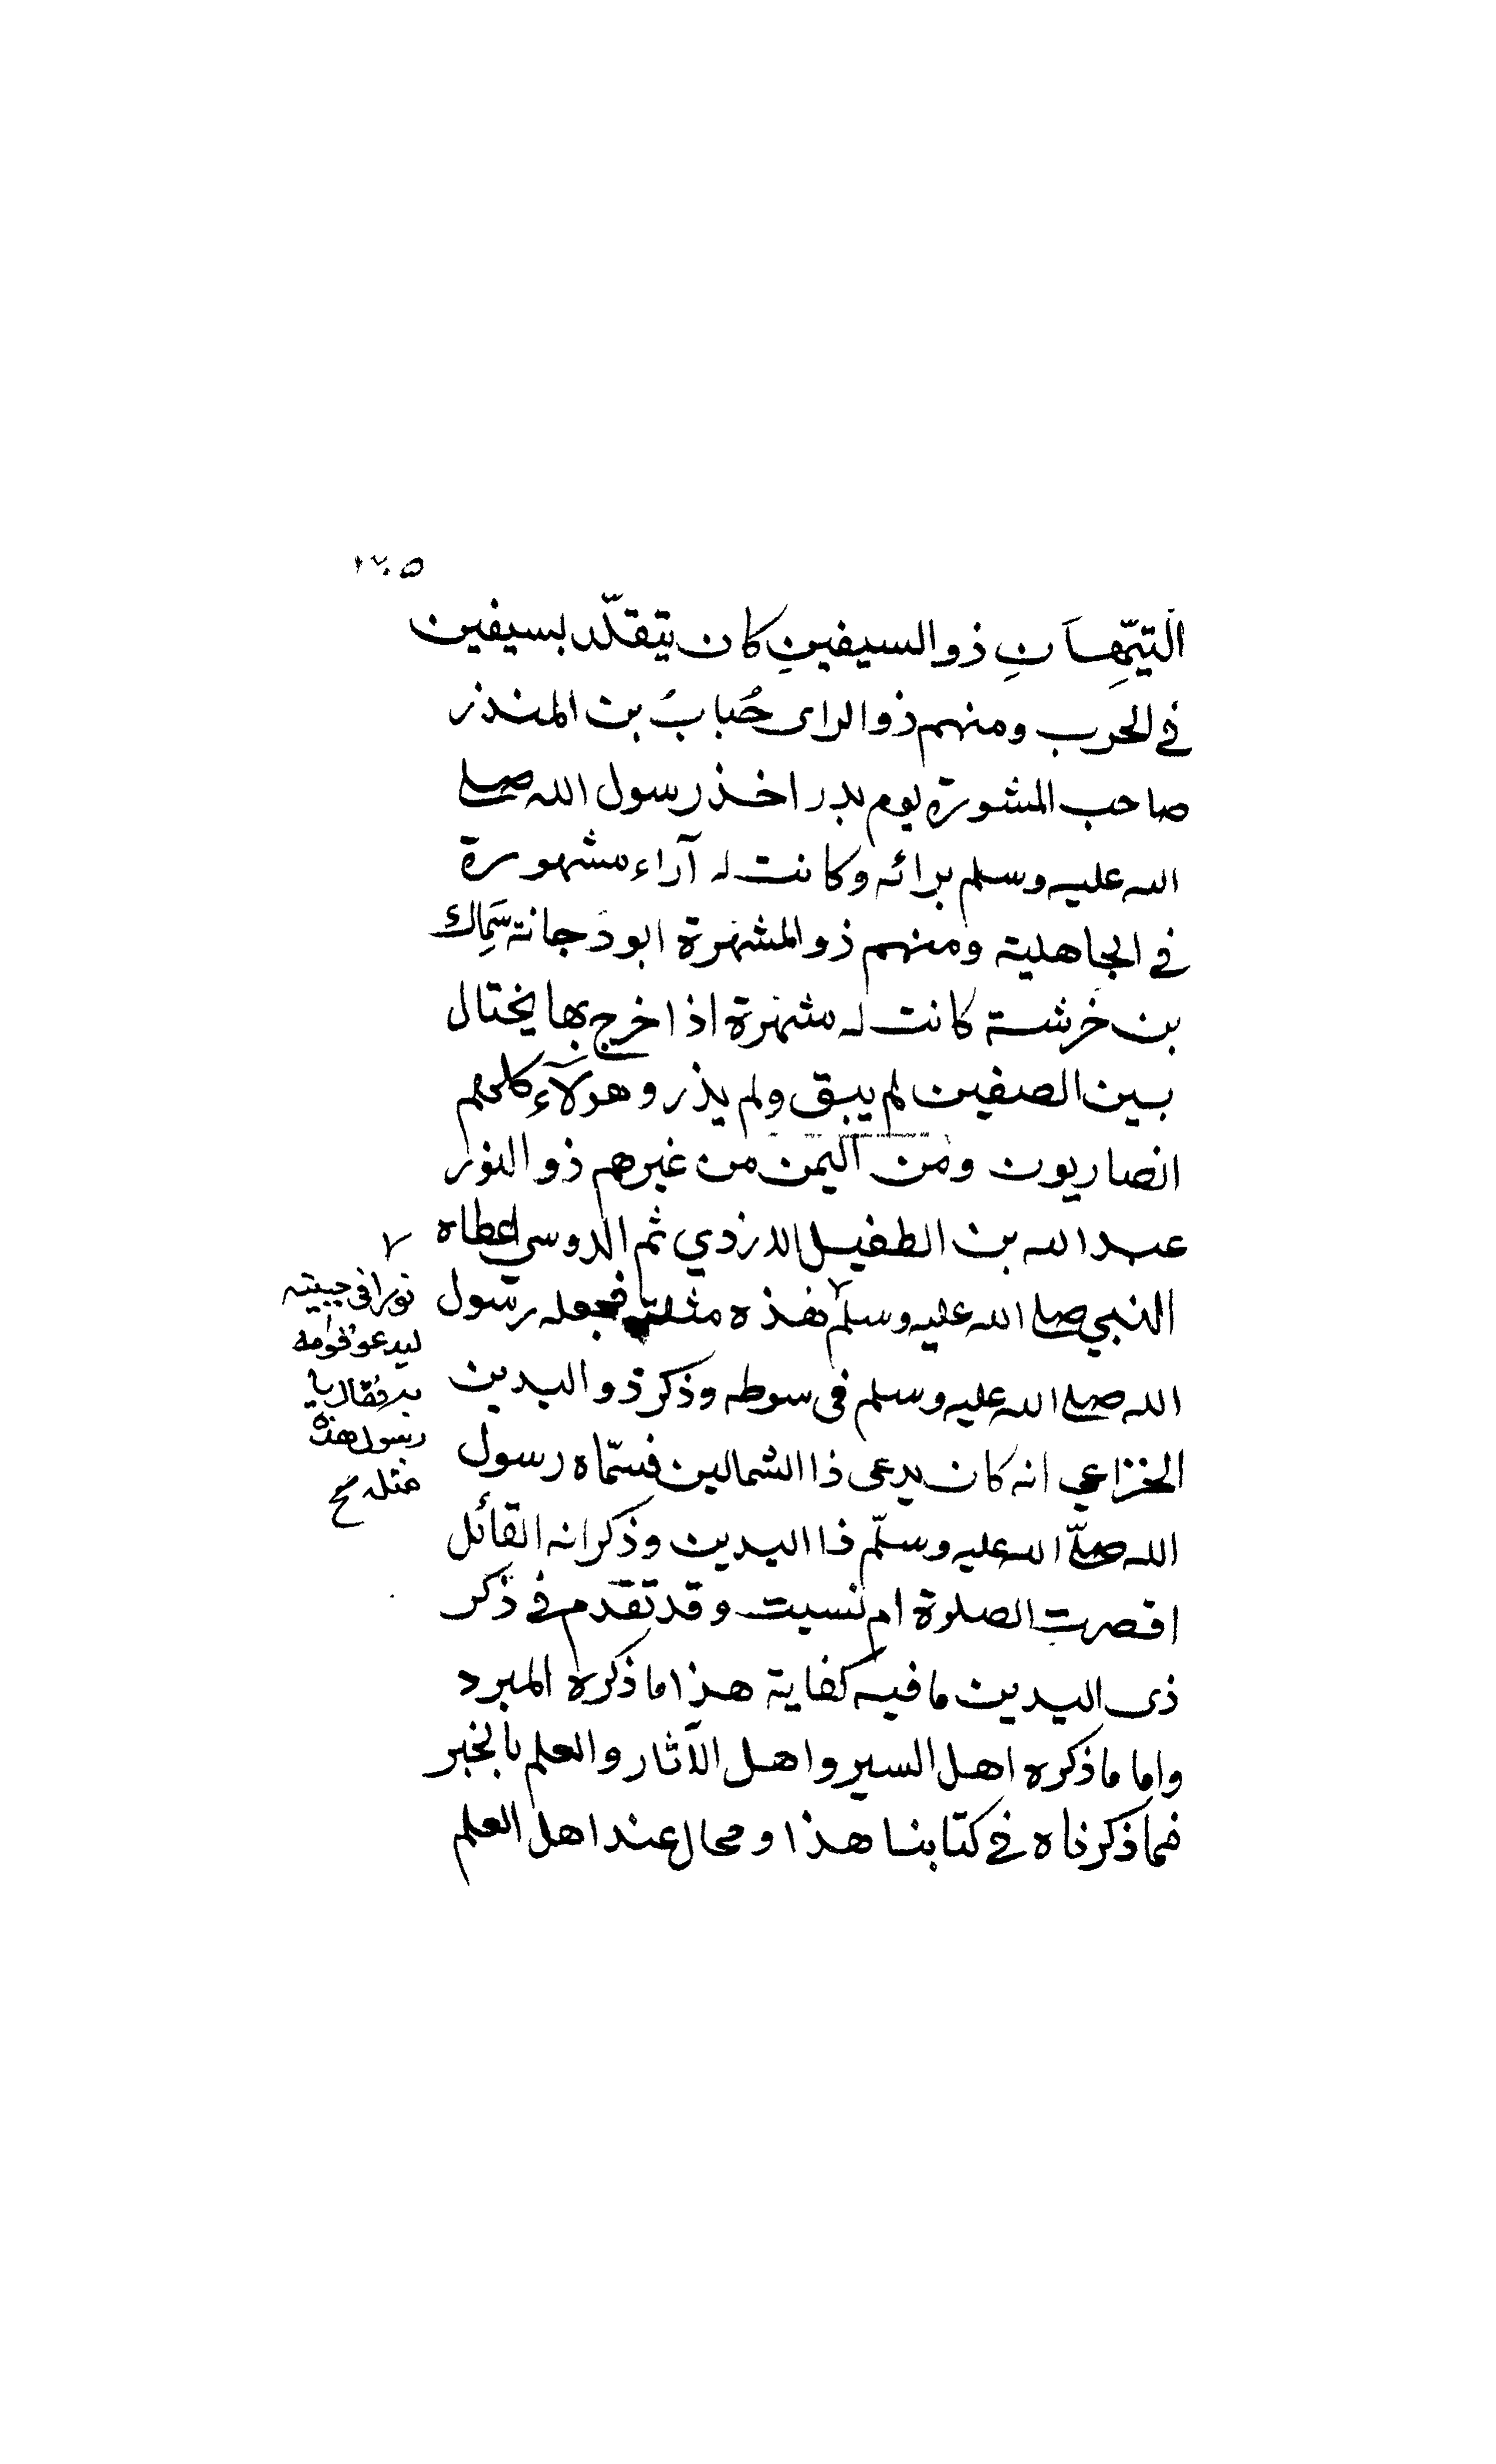 ٢٠٥
التَيّهِانِ ذو السيفينِ كان يتقلّد بسيفين
في الحرب ومنهم ذو الراى حُبابُ بن المنذر
صاحب المشورة يوم بدر اخذ رسول الله صلى
الله عليه وسلم برائه وكانت له آراء مشهورة
في الجاهلية ومنهم ذو المشهرة ابو دجانة سَمِاك
بن خَرشة كانت له مشهرة اذا خرج بها يختال
بين الصفين لم يبق ولم يذر وهولآء كلهم
انصاريون ومن اليمن من غيرهم ذو النور
عبد الله بن الطفيل الازدي ثم الدوسي اعطاه
النبي صلى الله عليه وسلم فهذه مثلة فجعله رسول
الله صلى الله عليه وسلم فى سوطه وذكر ذو اليدين
الخزاعي انه كان يدعى ذا الشمالين فسمّاه رسول
الله صلّى الله عليه وسلّم ذا اليدين وذكر انه القائل
اقصرت الصلوة ام نسيت وقد تقدم في ذكر
ذى اليدين ما فيه كفاية هذا ما ذكره المبرد
واما ما ذكره اهل السير واهل الآثار والعلم بالخبر
فما ذكرناه في كتابنا هذا ومحال عند اهل العلم
نورا فى جبينه
ليدعو قومه
به فقال يا
رسول هذه
مثله صح